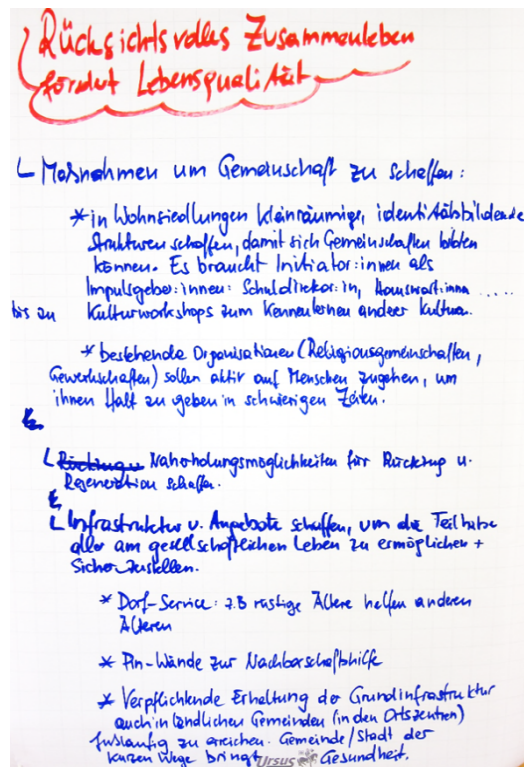 Rücksichtsvolles Zusammenleben
fördert Lebensqualität
Maßnahmen um Gemeinschaft zu schaffen:
* in Wohnsiedlungen kleinräumige, identitätsbildende
Strukturen schaffen, damit sich Gemeinschaften bilden
können. Es braucht Initiator:innen als
Impulsgeber:innen: Schuldirektor:in, Hauswart:innen .....
bis zu Kulturworkshops zum Kennenlernen anderer Kulturen.
* bestehende Organisationen (Religionsgemeinschaften,
Gewerkschaften) sollen aktiv auf Menschen zugehen, um
ihnen Halt zu geben in schwierigen Zeiten.
Naherholungsmöglichkeiten für Rückzug u.
Regeneration schaffen.
Infrastruktur u. Angebote schaffen, um die Teilhabe
aller am gesellschaftlichen Leben zu ermöglichen +
Sicherzustellen.
* Dorf-Service: z.B rüstige Ältere helfen anderen
Älteren
* Pin-Wände zur Nachbarschaftshilfe
* Verpflichtende Erhaltung der Grundinfrastruktur
auch in ländlichen Gemeinden (in den Ortszentren)
fußläufig zu erreichen. Gemeinde/Stadt der
kurzen Wege bringt Gesundheit.
Ursus